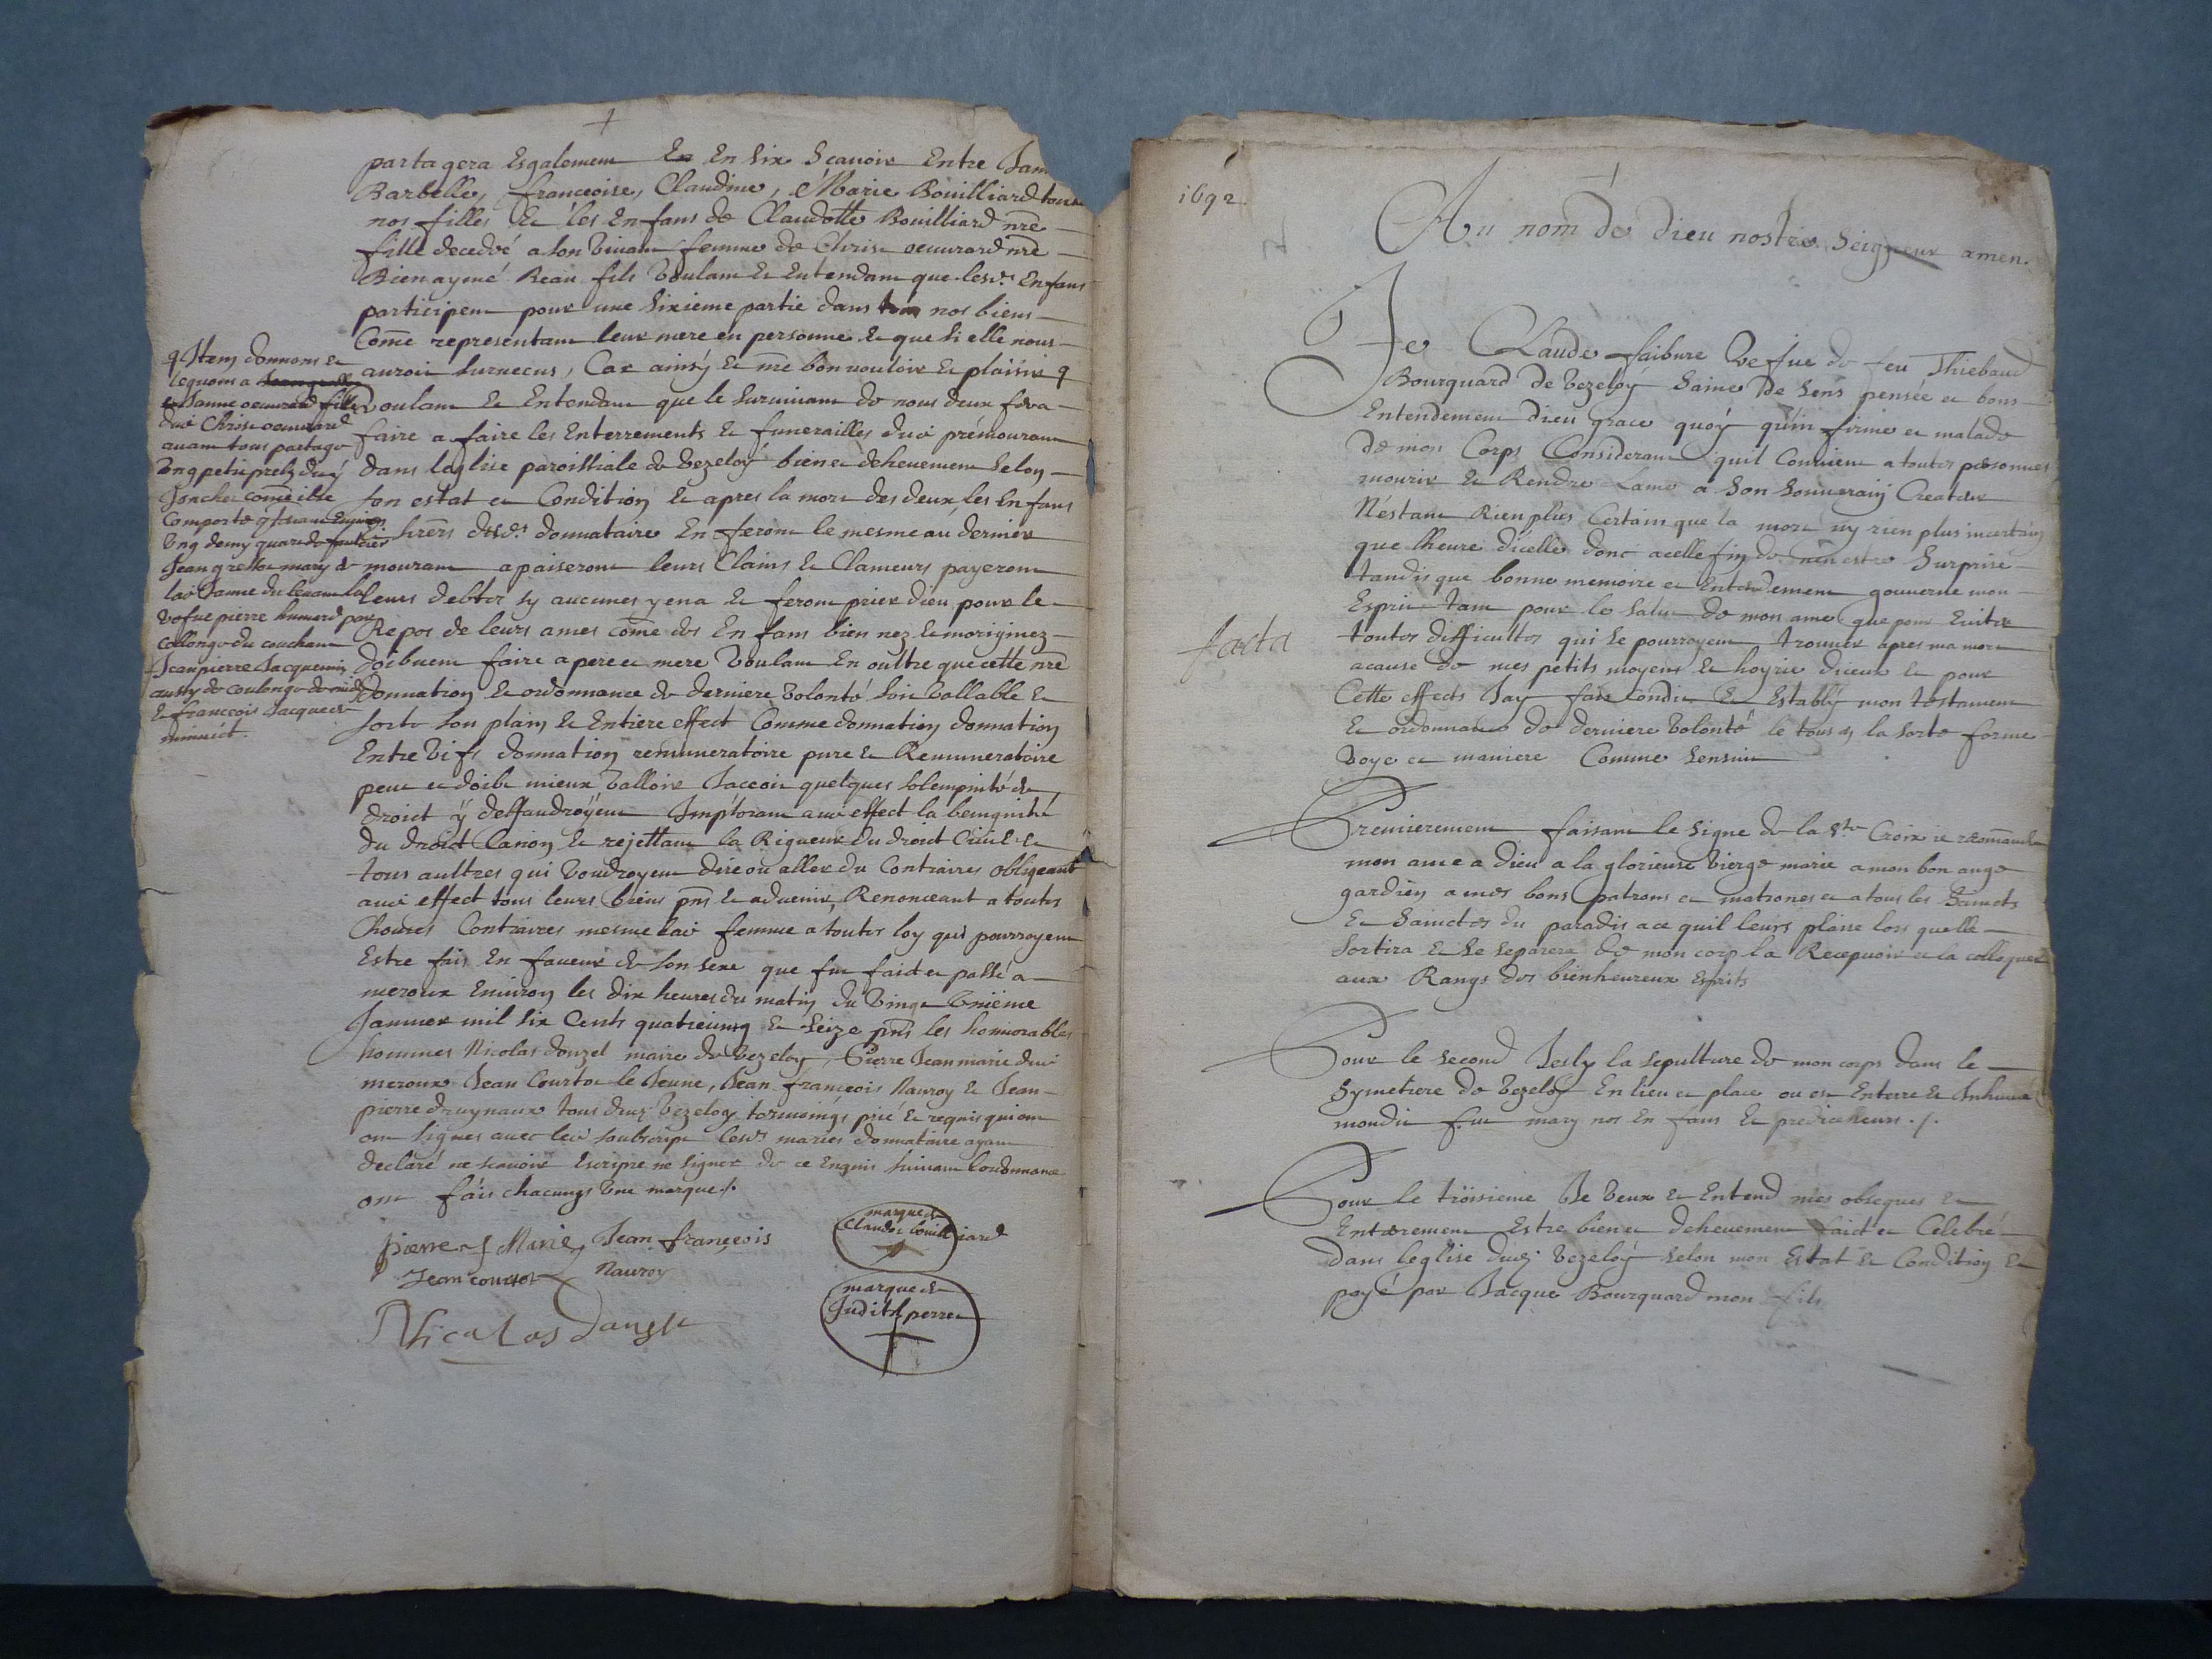 partagera Esgalement En Six Scavoir Entre Jan
Barbelle, francoise, Claudine, Marie Bouilliard tou
nos filles Et les Enfans de Claudotte Bouilliard nre
fille decedé a son vivant femme de Christ oeuvrard nre
Bien aymé Beau fils Voulant Et Entendant que lesd. Enfans
participent pour une sixieme partie dans nos biens
Come representant leur mere en personne Et que si elle nous
auroit survecus, Car ainsÿ Et nre bon vouloir Et plaisir
Voulant Et Entendant que le survivant de nous deux fera
faire a faire les Enterrements Et funerailles du prémourant
dans leglise paroissiale de Vezeloÿ bien et dehevement selon
son estat et Condition Et apres la mort des deux, les Enfans
hrers desd. donnataire En feront le mesme au dernier
mourant apaiseront leurs Claims Et Clameurs payeront
leurs debtes sy aucunes y en a Et feront prier dieu pour le
Repos de leurs ames come des Enfans bien nez Et moriginez
doibvent faire a pere et mere Voulant En oultre que cette nre
donnation Et ordonnance de derniere Volonté soit Vallable Et
sorte son plain Et Entiere effect Comme donnation donnation
Entre Vifs donnation remuneratoire pure Et Remuneratoire
peut et doibt mieux Valloir Jaccoit quelques solempnité de
droict ÿ deffaudroÿent Imploram effect la benignité
du droict Canon Et rejettant la Rigueur du droict Civil Et
tous aultres qui Voudroyent dire ou aller du Contraires obligeant
effect tous leurs biens pns Et advenir, Renonceant a toutes
Choses Contraires mesme femme a toutes loy qui pourroyent
Estre fais En faveur de son sexe que fut faict et passé a
meroux Environ les dix heures du matin du Vingt Unieme
Janvier mil six Cents quatrevingt Et seize pns les honnorables
hommes Nicolas donzel maire de Vezeloy, Pierre Jean marie
meroux Jean Courtot le Jeune, Jean françois Nauroy Et Jean
pierre druynaux tous Vezeloy tesmoings prié Et requis qui ont
signes avec soubscript lesd. maries donnataire ayant
declaré ne scavoir Escripre ne signer de ce Enquis suivant lordonnance
ont fais chacungs Une marque./.
q Item donnons Et
leguons a
Janne oeuvrard fille
Christ oeuvrard
avant tous partage
Ung petit pretz
come il se
Comporte
Ung demy quart de
Jean mary de
Janne du levant
Vefve pierre humerd
Collonge du couchant
Jean pierre Jacquemin
aussy de coulonge
Et françois Jacquez
minuict.
pierre J Marie, Jean françeois
Nauroy
Jean courtot
Nicalas danzel
marque de
Claude bouilliard
marque de
Judith perret
1692.
Au nom de dieu nostre Seigneur amen.
Je Claude faibvre Vefve de feu Thiebaud
Bourquard de Vezeloÿ Saine de Sens pensée et bons
Entendement dieu grace quoÿ qu'infirme et malade
de mon Corps Considerant quil Convient a toutes personnes
mourir Et Rendre Lame a Son Souverain Createur
N'éstant Rien plus Certain que la mort ny rien plus incertain
que lheure dicelle donc acelle fin de nen estre Surprise
tandis que bonne memoire et Entendement gouverne mon
Esprit tant pour le salut de mon ame que pour Eviter
toutes difficultes qui se pourroyent trouver apres ma mort
facta
acause de mes petits moyens Et hoyrie dieux Et pour
Cette effects Jay fais Condit Et Establÿ mon testament
Et ordonnance de derniere Volonté le tous en la sorte forme
Voye et maniere Comme sensuit
Premierement faisant le Signe de la Ste Croix je recomande
mon ame a dieu a la glorieuse Vierge marie a mon bon ange
gardien a mes bons patrons et matrones et a tous les Saincts
Et Sainctes du paradis ace quil leurs plaise lors quelle
Sortira Et se separera de mon corp la Recepvoir et la colloquer
aux Rangs des bienheureux Esprits
Pour le second Jesly la sepulture de mon corps dans le
Symetiere de Vezeloÿ En lieu et place ou est Enterre Et Inhumé
mondit feu mary nos Enfans Et predicesseurs ./.
Pour le troisieme Je Veux Et Entend mes obseques Et
Enterement Estre bien et dehevement faict et Celebré
dans leglise Vezeloÿ selon mon Estat Et Condition Et
payé par Jacque Bourquard mon fils